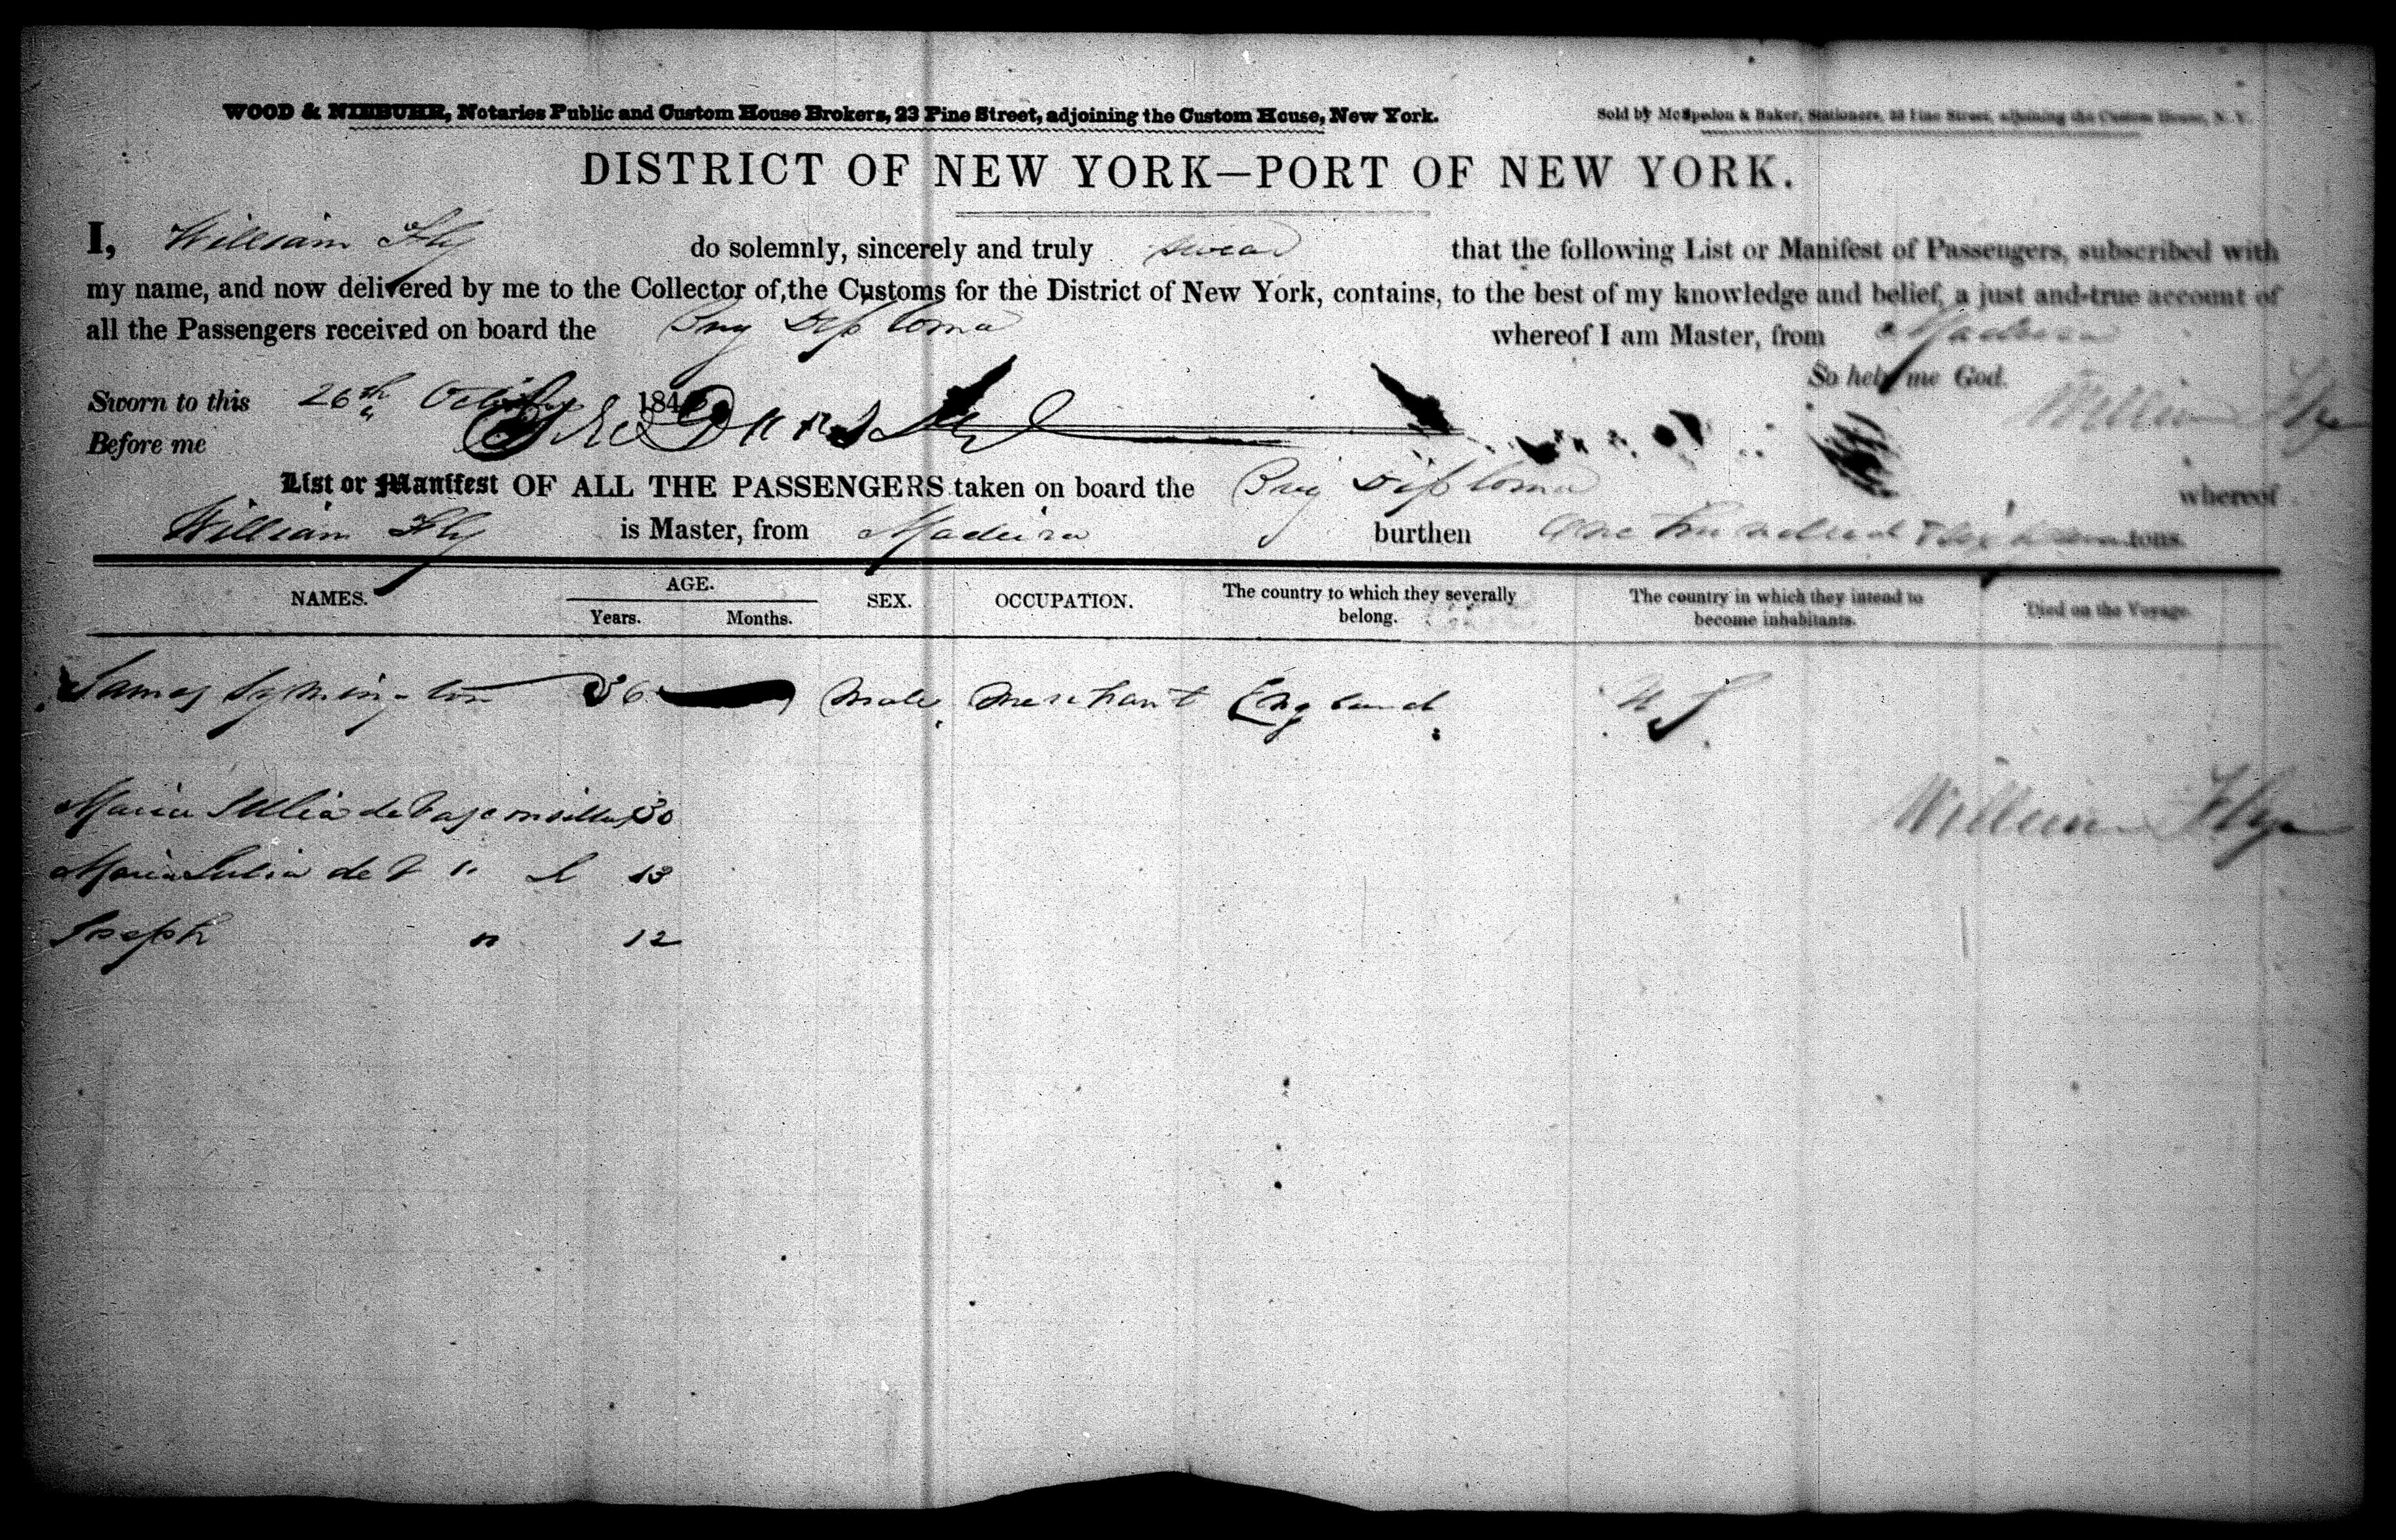 WOOD & NIEBUHR, Notaries Public and Custom House Brokers, 23 Pine Street, adjoining the Custom House, New York.
Sold by McSpedon & Baker, Stationers, 25 Pine Street, adjoining the Custom House, N. Y.
DISTRICT OF NEW YORK—PORT OF NEW YORK.
I, William Fly do solemnly, sincerely and truly swear that the following List or Manifest of Passengers, subscribed with
my name, and now delivered by me to the Collector of the Customs for the District of New York, contains, to the best of my knowledge and belief, a just and true account of
all the Passengers received on board the Brig Diploma whereof I am Master, from Madeira
So help me God.
Sworn to this 26th October 184
William Flye
Before me
List or Manifest OF ALL THE PASSENGERS taken on board the Brig Diploma whereof
William Fly is Master, from Madeira burthen One hundred tons.
NAMES. AGE. SEX. OCCUPATION. The country to which they severally belong. The country in which they intend to become inhabitants. Died on the Voyage.
Years. Months.
James Symington 36 Male Merchant England U S
Maria Julia de Vasconsillus 30
William Flye
Maria Julia de V " 13
Joseph " 12